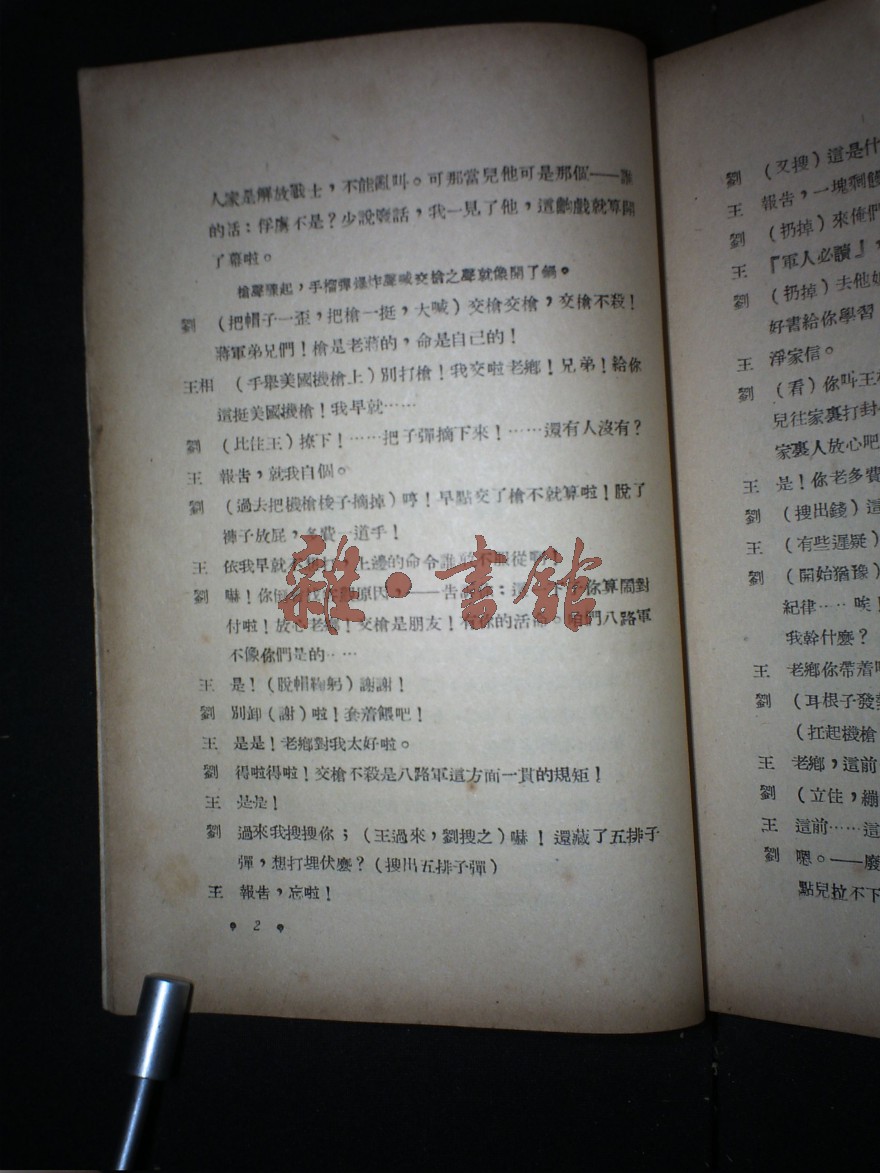 人家是解放戰士，不能亂叫。可那當兒他可是那個——誰
的活：俘虜不是？少說廢話，我一見了他，這齣戲就算開
了幕啦。
槍聲驟起，手榴彈爆炸聲喊交槍之聲就像開了鍋。
劉 （把帽子一歪，把槍一挺，大喊）交槍交槍，交槍不殺！
蔣軍弟兄們！槍是老蔣的，命是自己的！
王相 （手舉美國機槍上）別打槍！我交啦老鄉！兄弟！給你
這挺美國機槍！我早就……
劉 （比住王）撩下！……把子彈摘下來！……還有人沒有？
王 報告，就我自個。
劉 （過去把機槍梭子摘掉）哼！早點交了槍不就算啦！脫了
褲子放屁，多費一道手！
王 依我早就 上邊的命令誰 不服從
劉 嚇！你 原因，——告 你算闊對
付啦！放心老鄉！交槍是朋友！有你的活 咱們八路軍
不像你們是的……
王 是！（脫帽鞠躬）謝謝！
劉 別卸（謝）啦！套着餵吧！
王 是是！老鄉對我太好啦。
劉 得啦得啦！交槍不殺是八路軍這方面一貫的規矩！
王 是是！
劉 過來我搜搜你；（王過來，劉搜之）嚇！還藏了五排子
彈，想打埋伏麼？（搜出五排子彈）
王 報告，忘啦！
2
劉 （又搜）這是什
王 報告，一塊剩
劉 （扔掉）來俺們
王 『軍人必讀』，
劉 （扔掉）去他
好書給你學習
王 淨家信。
劉 （看）你叫王
兒往家裏打封
家裏人放心吧
王 是！你老多費
劉 （搜出錢）這
王 （有些遲疑）
劉 （開始猶豫）
紀律……唉！
我幹什麼？
王 老鄉你帶着
劉 （耳根子發
（扛起機槍
王 老鄉，這前
劉 （立住，繃
王 這前……這
劉 嗯。——廢
點兒拉不下
雜·書館